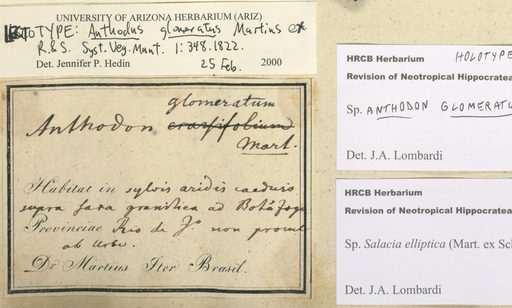 UNIVERSITY OF ARIZONA HERBARIUM (ARIZ)
TYPE: Anthodus glomeratus Martius ex
R.&S. Syst. Veg. Mant. 1:348. 1822.
Det. Jennifer P. Hedin 25 Feb. 2000
glomeratum
Anthodon crassifolium
Mart.
Habitat in sylvis aridis caeduis
supra saxa granitica ad Botafogo
Provinciae Rio de J° non procul
ab Urbe.
Dr Martius Iter Brasil.
HRCB Herbarium HOLOTYPE
Revision of Neotropical Hippocratea
Sp. ANTHODON GLOMERATU
Det. J.A. Lombardi
HRCB Herbarium
Revision of Neotropical Hippocratea
Sp. Salacia elliptica (Mart. ex Sch
Det. J.A. Lombardi